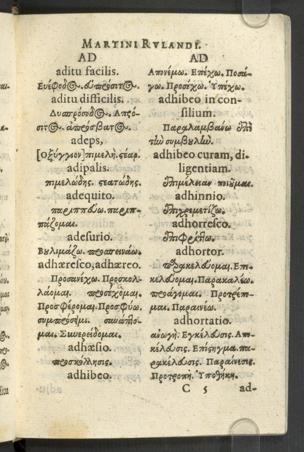 MARTINI RVLANDI.
AD
aditu facilis.
Εὐέφοδος. εὐπρόσιτος.
aditu difficilis.
Δυσπρόσοδος. Ἀπρόσ-
ιτος. ἀπρόσβατος.
adeps,
[Ὀξύγγιον] πιμελή. στέαρ.
adipalis.
πιμελώδης. στεατώδης.
adequito.
παριππεύω. παριπ-
πάζομαι.
adesurio.
Βουλιμάζω. προσπεινάω.
adhæresco, adhæreo.
Προσανέχω. Προσκολ-
λάομαι. προσέχομαι.
Προσφέρομαι. Προσφύω.
συμπρόσειμι. συνάπτο-
μαι. Συνερείδομαι.
adhæsio.
προσκόλλησις.
adhibeo.
AD
Ἀπονέμω. Ἐπέχω. Ποσά-
γω. Προσέχω. Ὑπέχω.
adhibeo in con-
silium.
Παραλαμβάνω ἐπὶ
τῶν συμβουλῶν.
adhibeo curam, di-
ligentiam.
ἐπιμέλειαν ποιοῦμαι.
adhinnio.
ἐπιχρεμετίζω.
adhorresco.
ἐπιφρίττω.
adhortor.
παρακελεύομαι. Ἐπι-
κελεύομαι. Παρακαλέω.
προάγομαι. Προτρέπο-
μαι. Παραινέω.
adhortatio.
ἀγωγή. Ἐγκέλευσις. Ἐπι-
κέλευσις. Ἐπίσηγμα. πα-
ρακέλευσις. Παραίνεσις.
Προτροπή. Ὑποθήκη.
C 5 ad-